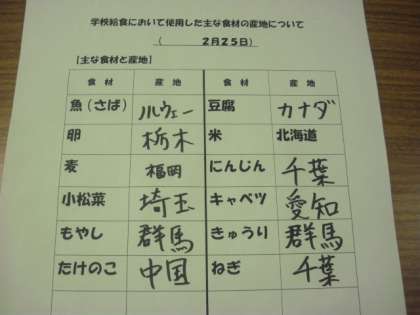 学校給食において使用した主な食材の産地について
（　2月25日）
【主な食材と産地】
食材 産地 食材 産地
魚（さば） ノルウェー 豆腐 カナダ
卵 栃木 米 北海道
麦 福岡 にんじん 千葉
小松菜 埼玉 キャベツ 愛知
もやし 群馬 きゅうり 群馬
たけのこ 中国 ねぎ 千葉